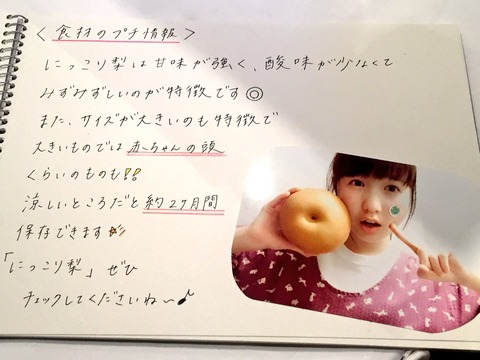 ＜食材のプチ情報＞
にっこり梨は甘味が強く、酸味が少なくて
みずみずしいのが特徴です◎
また、サイズが大きいのも特徴で
大きいものでは赤ちゃんの頭
くらいのものも!!
涼しいところだと約2ヶ月間
保存できます
「にっこり梨」ぜひ
チェックしてくださいね〜♪